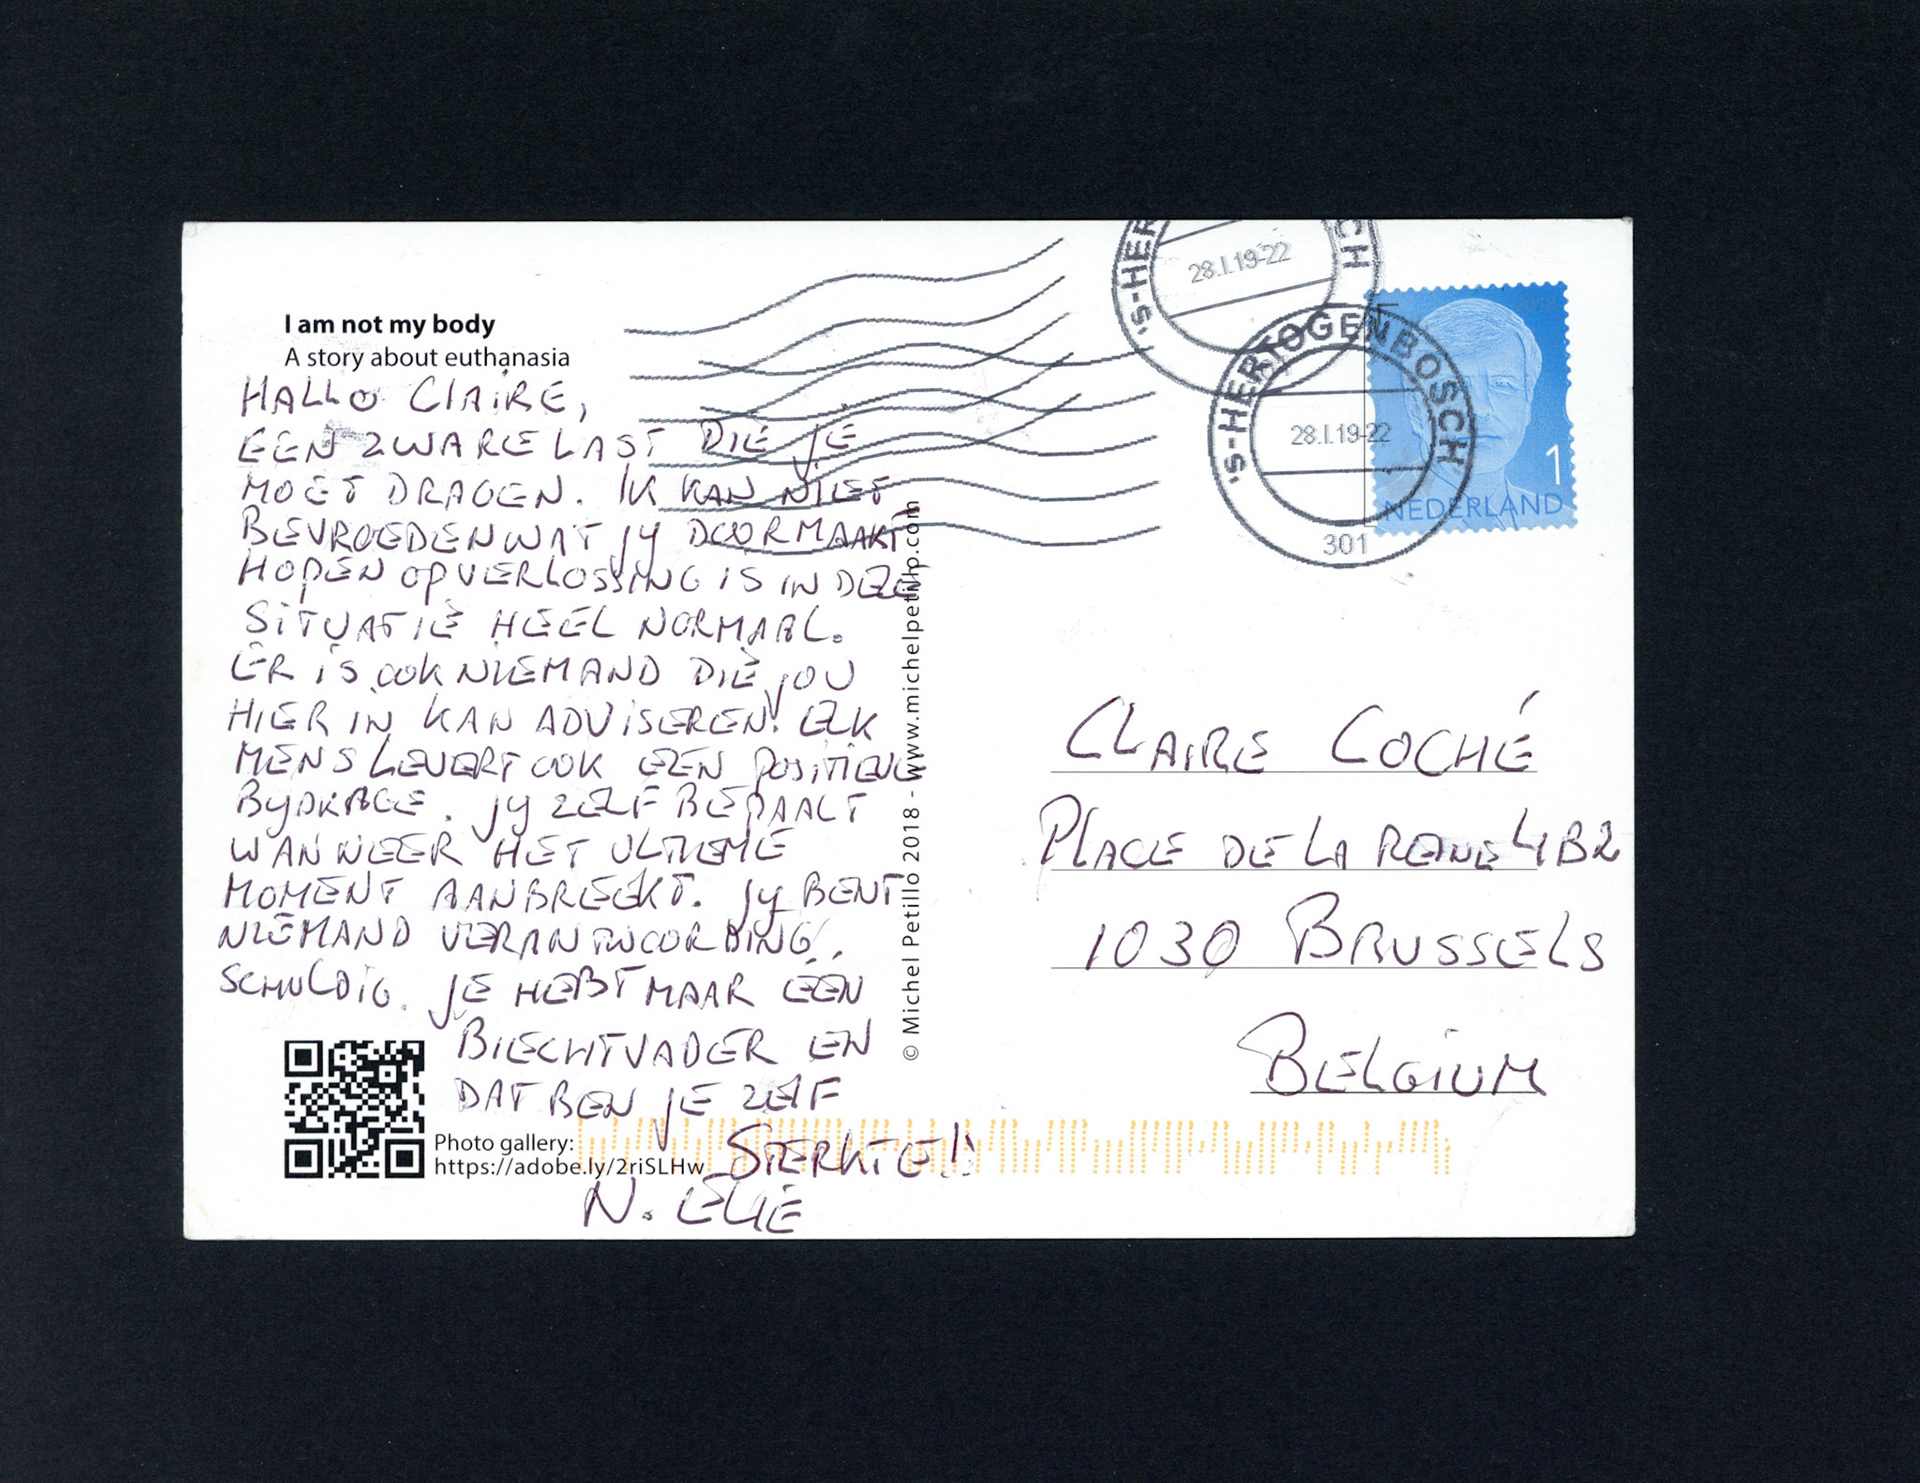 I am not my body
A story about euthanasia
HALLO CLAIRE,
EEN ZWARE LAST DIE JE
MOET DRAGEN. IK KAN NIET
BEVROEDEN WAT JY DOORMAAKT
HOPEN OP VERLOSSING IS IN DEZE
SITUATIE HEEL NORMAAL.
ER IS OOK NIEMAND DIE JOU
HIER IN KAN ADVISEREN. ELK
MENS LEVERT OOK EEN POSITIEVE
BYDRAGE. JY ZELF BEPAALT
WANNEER HET ULTIEME
MOMENT AANBREEKT. JY BENT
NIEMAND VERANTWOORDING
SCHULDIG. JE HEBT MAAR ÉÉN
BIECHTVADER EN
DAT BEN JE ZELF
STERKTE!!
N. ELIE
Photo gallery:
https://adobe.ly/2riSLHw
© Michel Petillo 2018 - www.michelpetillo.com
's-HER CH
28.I.19-22
's-HERTOGENBOSCH
28.I.19-22
301
1
NEDERLAND
CLAIRE COCHÉ
PLACE DE LA REINE 4B2
1030 BRUSSELS
BELGIUM